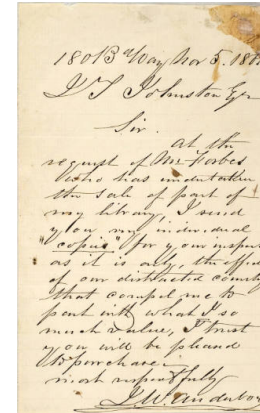 180 B Way Nov 5. 186
J T Johnston Esqr
Sir.
At the
request of Mr Forbes
who has undertaken
the sale of part of
my library, I send
you my individual
"copies" for your inspec
as it is only, the effect
of our distracted country
that compel me to
part with what I so
much value, I trust
you will be pleased
to purchase.
most respectfully